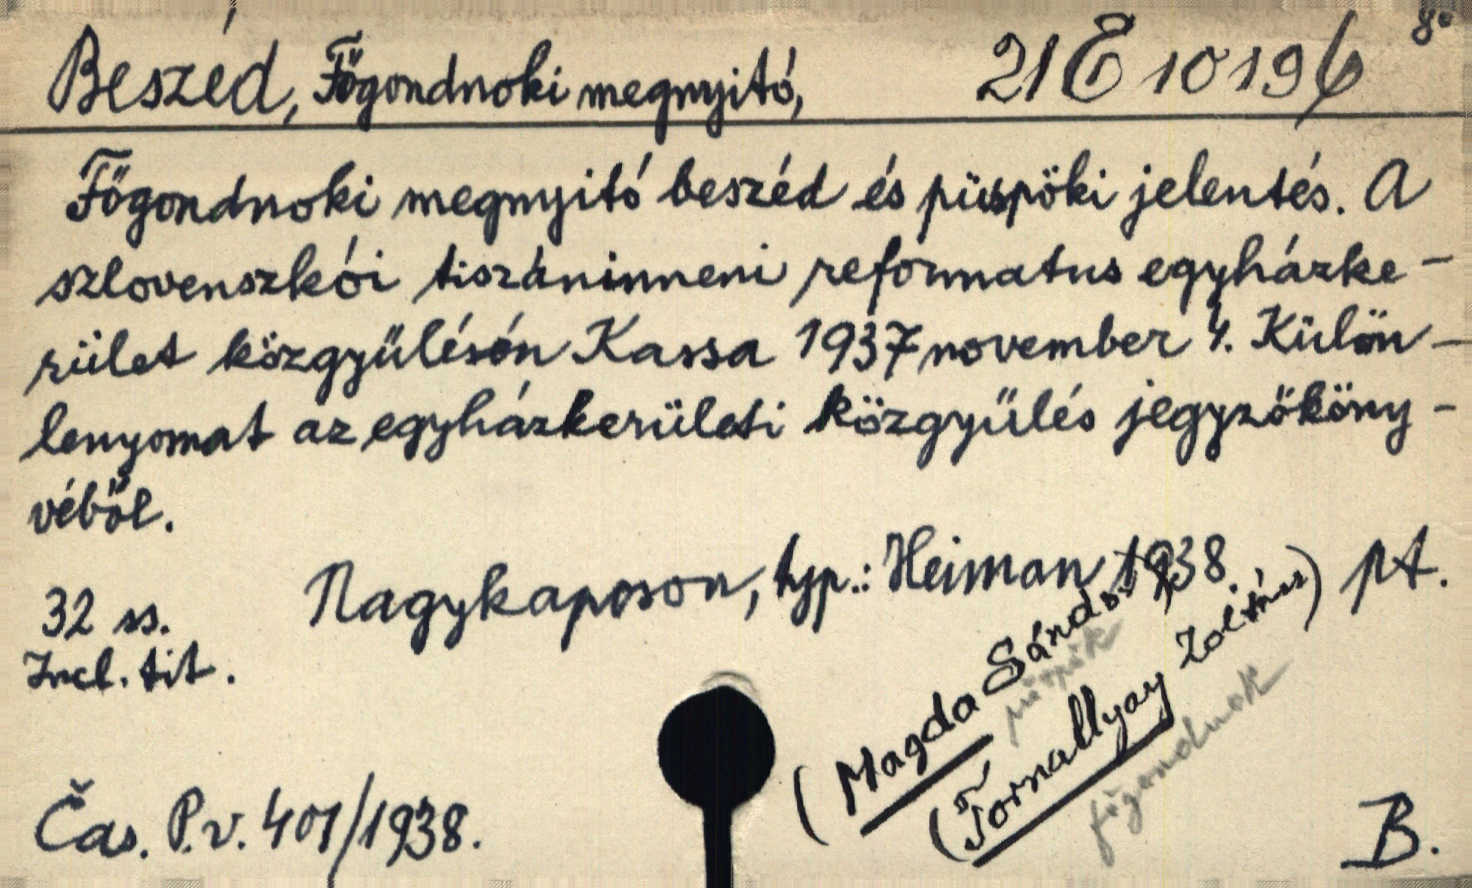 Beszéd, Főgondnoki megnyitó, 21 E 10196 8°
Főgondnoki megnyitó beszéd és püspöki jelentés. A
szlovenszkói tiszáninneni református egyházke-
rület közgyűlésén Kassa 1937 november 4. Külön-
lenyomat az egyházkerületi közgyűlés jegyzőköny-
véből.
Nagykaposon, typ.: Heiman 1938. pt.
32 ss.
Incl. tit.
(Magda Sándor)
püspök
(Tornallyay Zoltán)
főgondnok
Čas. P.v. 401/1938.
B.